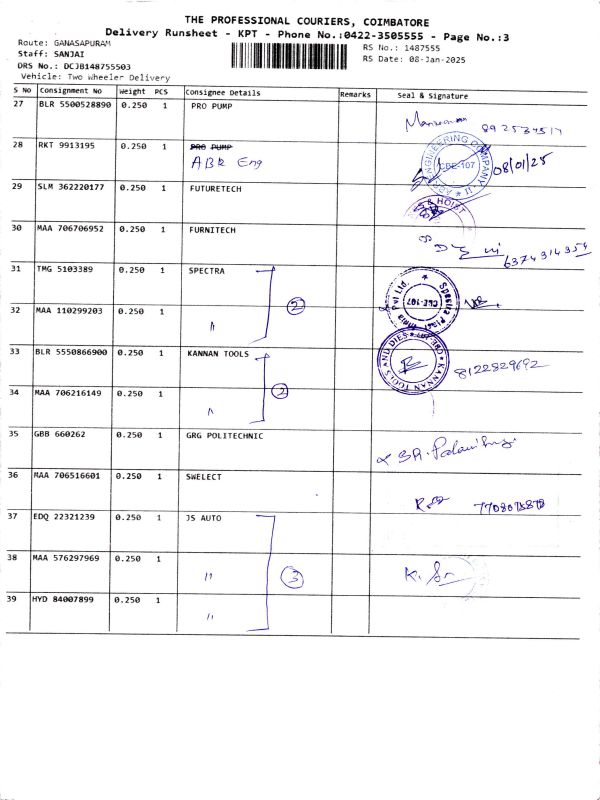 THE PROFESSIONAL COURIERS, COIMBATORE
Delivery Runsheet - KPT - Phone No.:0422-3505555 - Page No.:3
Route: GANASAPURAM
RS No.: 1487555
Staff: SANJAI
RS Date: 08-Jan-2025
DRS No.: DCJB148755503
Vehicle: Two Wheeler Delivery
S No Consignment No Weight PCS Consignee Details Remarks Seal & Signature
27 BLR 5500528890 0.250 1 PRO PUMP
28 RKT 9913195 0.250 1 PRO PUMP
ABR Eng
ENGINEERING COMPANY
CBE-107
08/01/25
29 SLM 362220177 0.250 1 FUTURETECH
& HOIST
30 MAA 706706952 0.250 1 FURNITECH
6374314354
31 TMG 5103389 0.250 1 SPECTRA
Spectra Plast India Pvt Ltd.
CBE-107
2
32 MAA 110299203 0.250 1 "
33 BLR 5550866900 0.250 1 KANNAN TOOLS
KANNAN TOOLS AND DIES
8122829692
2
34 MAA 706216149 0.250 1 "
35 GBB 660262 0.250 1 GRG POLITECHNIC
36 MAA 706516601 0.250 1 SWELECT
37 EDQ 22321239 0.250 1 JS AUTO
38 MAA 576297969 0.250 1 " 3
39 HYD 84007899 0.250 1 "